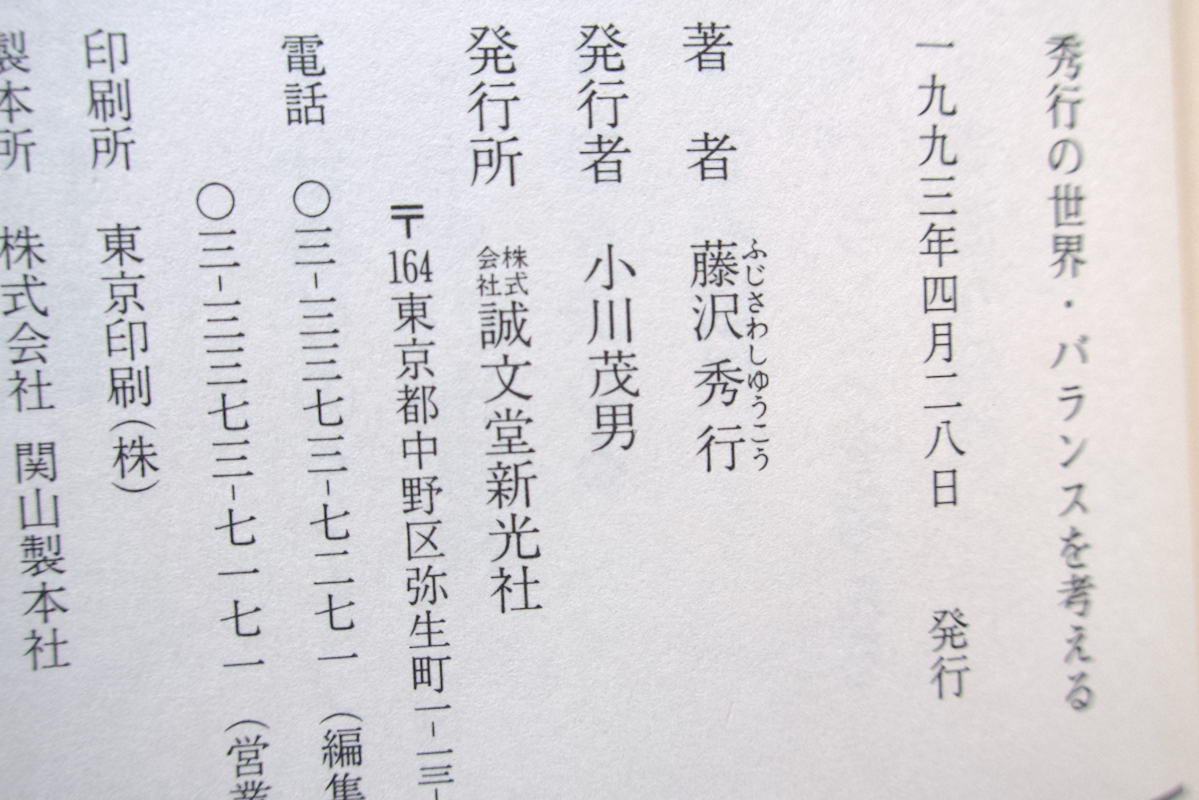 秀行の世界・バランスを考える
一九九三年四月二八日　発行
著　者　藤沢秀行
ふじさわしゆうこう
発行者　小川茂男
発行所　株式会社誠文堂新光社
〒164東京都中野区弥生町一-一三-
電話　〇三-三三七三-七二七一（編集
〇三-三三七三-七一七一（営業
印刷所　東京印刷（株）
製本所　株式会社　関山製本社